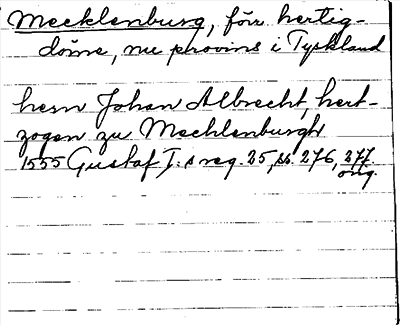 Mecklenburg, förr hertig-
döme, nu provins i Tyskland
hern Johan Albrecht, hert-
zogen zu Mechlenburgh
1555 Gustaf I:s reg. 25, ss. 276, 277.
orig.